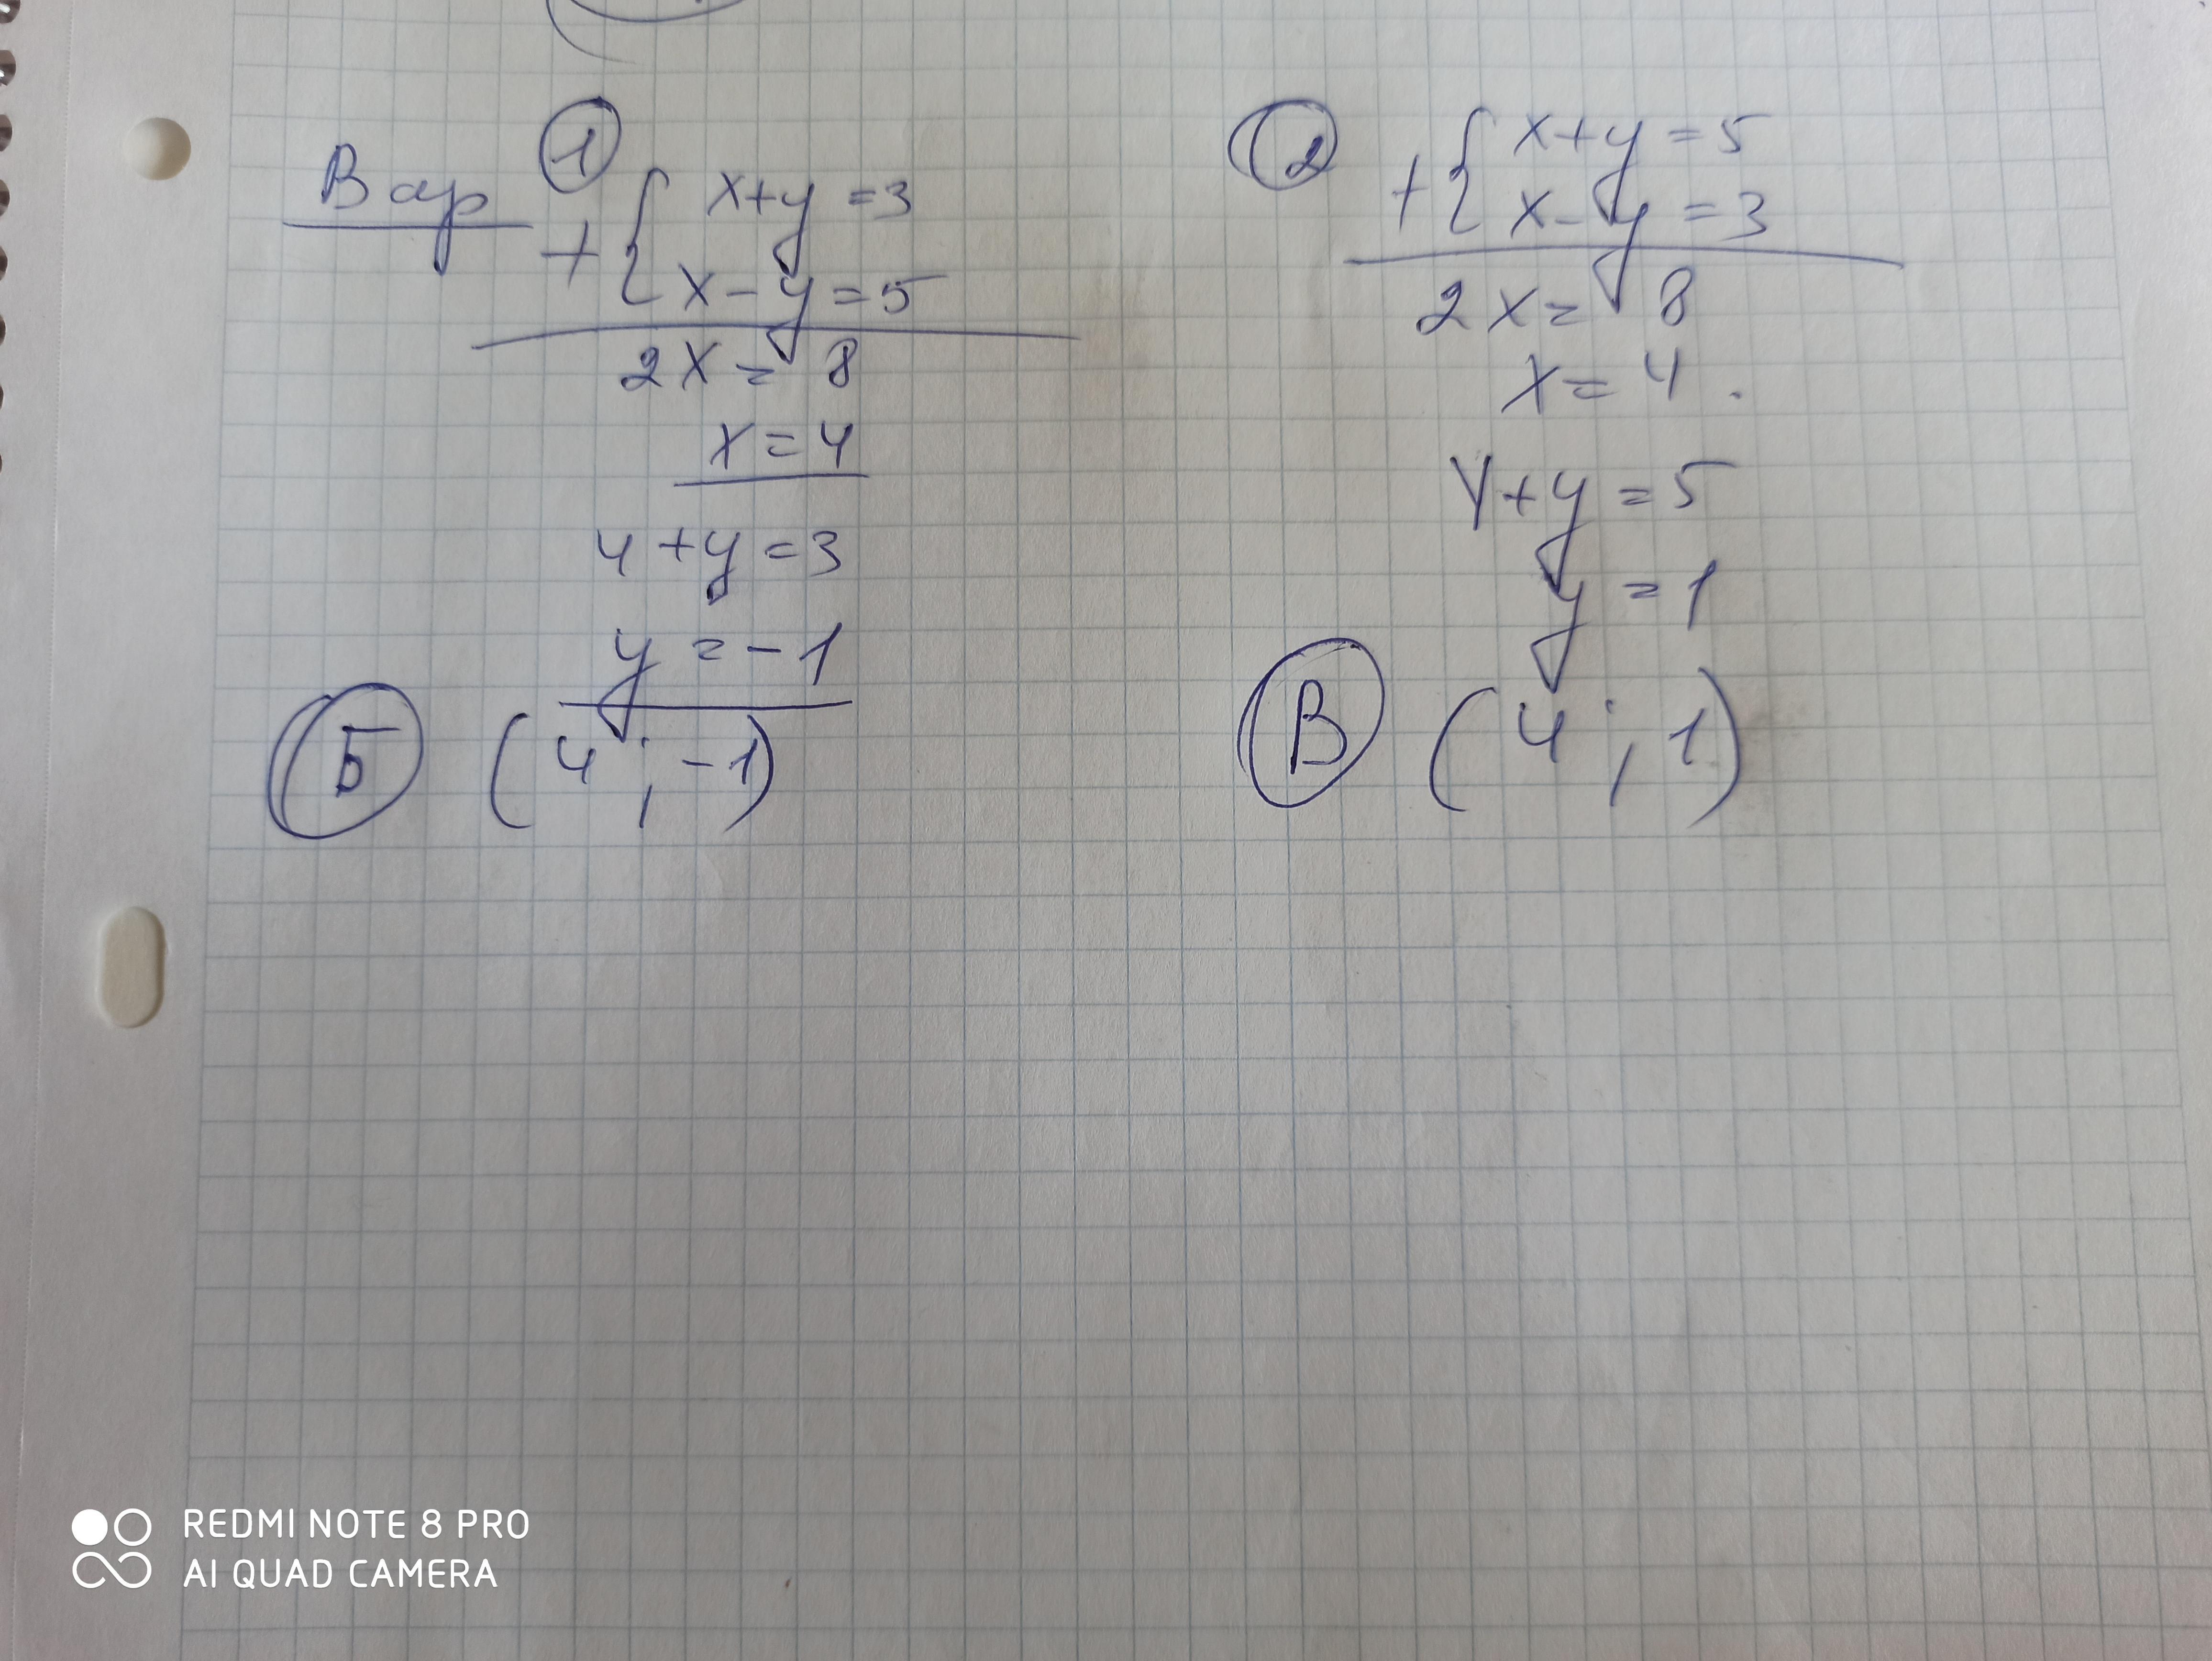 Вар ① + { x+y=3
x-y=5
2x=8
x=4
4+y=3
y=-1
Б (4;-1)
② + { x+y=5
x-y=3
2x=8
x=4.
4+y=5
y=1
В (4;1)
REDMI NOTE 8 PRO
AI QUAD CAMERA